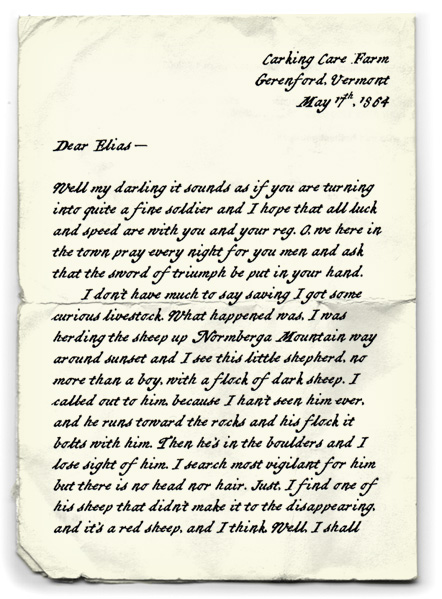 Carking Care Farm
Gerenford, Vermont
May 17th, 1864
Dear Elias—
Well my darling it sounds as if you are turning
into quite a fine soldier and I hope that all luck
and speed are with you and your reg. O, we here in
the town pray every night for you men and ask
that the sword of triumph be put in your hand.
I don't have much to say saving I got some
curious livestock. What happened was, I was
herding the sheep up Normberga Mountain way
around sunset and I see this little shepherd, no
more than a boy, with a flock of dark sheep. I
called out to him, because I han't seen him ever,
and he runs toward the rocks and his flock it
bolts with him. Then he's in the boulders and I
lose sight of him. I search most vigilant for him
but there is no head nor hair. Just, I find one of
his sheep that didn't make it to the disappearing,
and it's a red sheep, and I think, Well, I shall